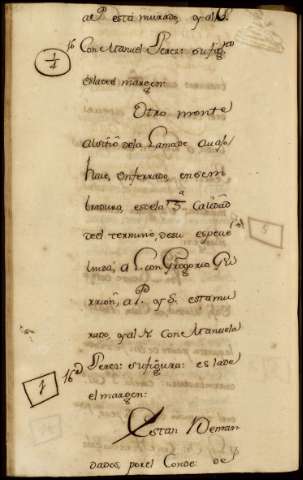 al P. está murado, y al S.
16 Con Manuel Peres: su fig.ra
1/4
es la del margen:
Otro monte
al sitio de la Lama de Aualo
haie, en ferrado, en sem
bradura, es de la 3.a Calidad
del termino, de su especie
linda, a L. con Gregorio Pi
rrion, a P. y S. esta mu
rado, y al N. Con Manuela
Peres: su figura: es la de
el margen:
1
Estan Deman
dados por el Conde: de